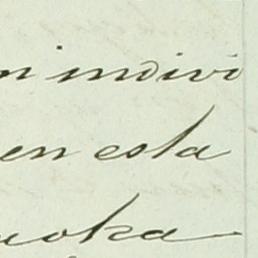 n indivi
en esta
uoka